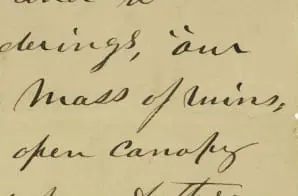 derings, "our
Mass of ruins,
open canopy